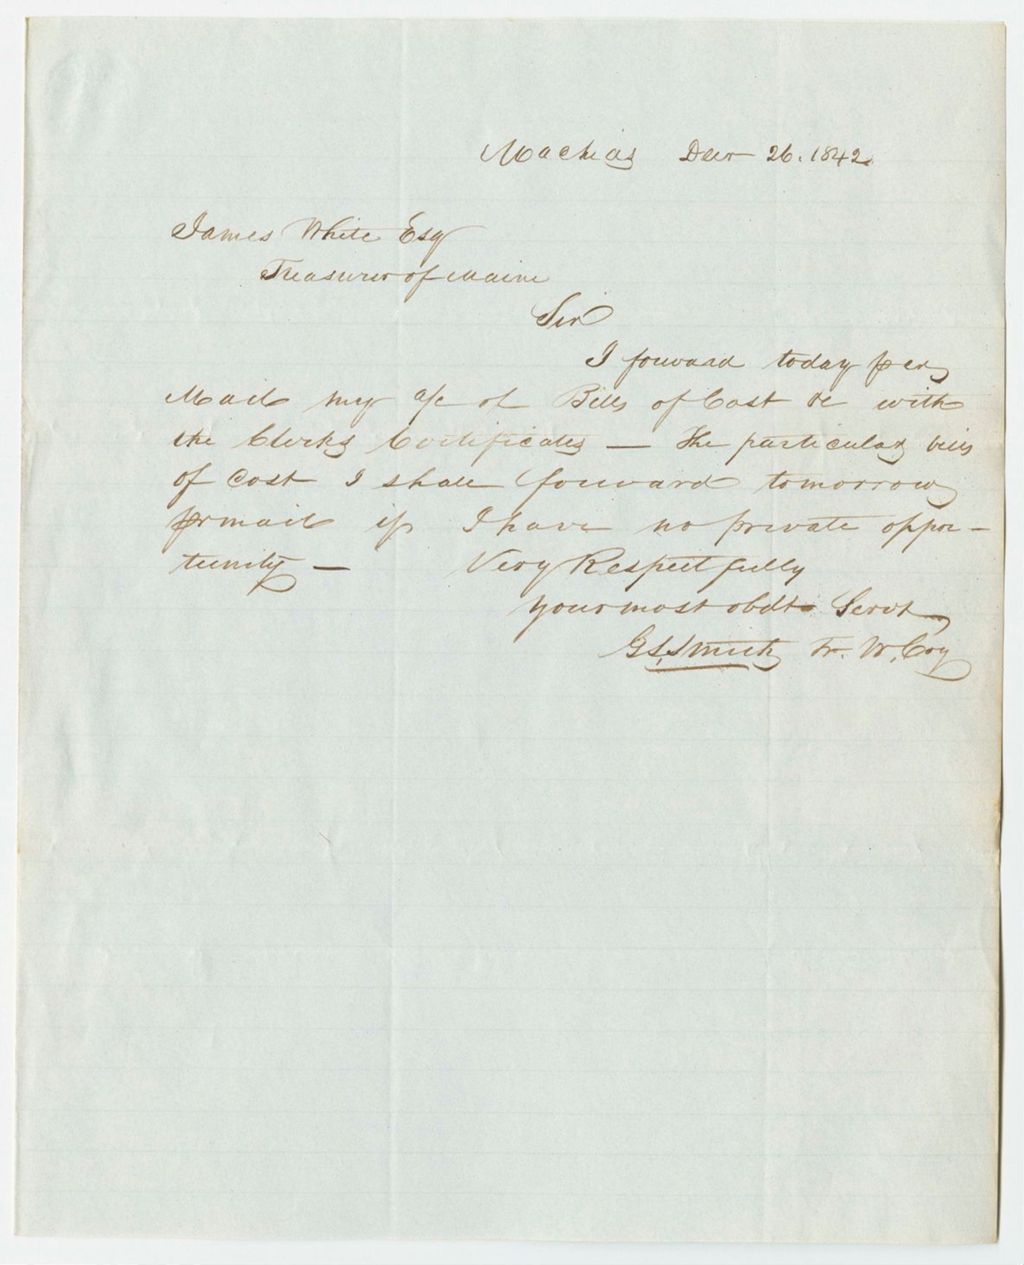 Machias Decr 26. 1842
James White Esq
Treasurer of Maine
Sir
I forward today per
Mail my a/c of Bills of Cost &c with
the Clerks Certificates — The particular bills
of Cost I shall forward tomorrow
pr mail if I have no private oppor-
tunity — Very Respectfully
your most obdt Servt
G. S. Smith Tr. W. Coy